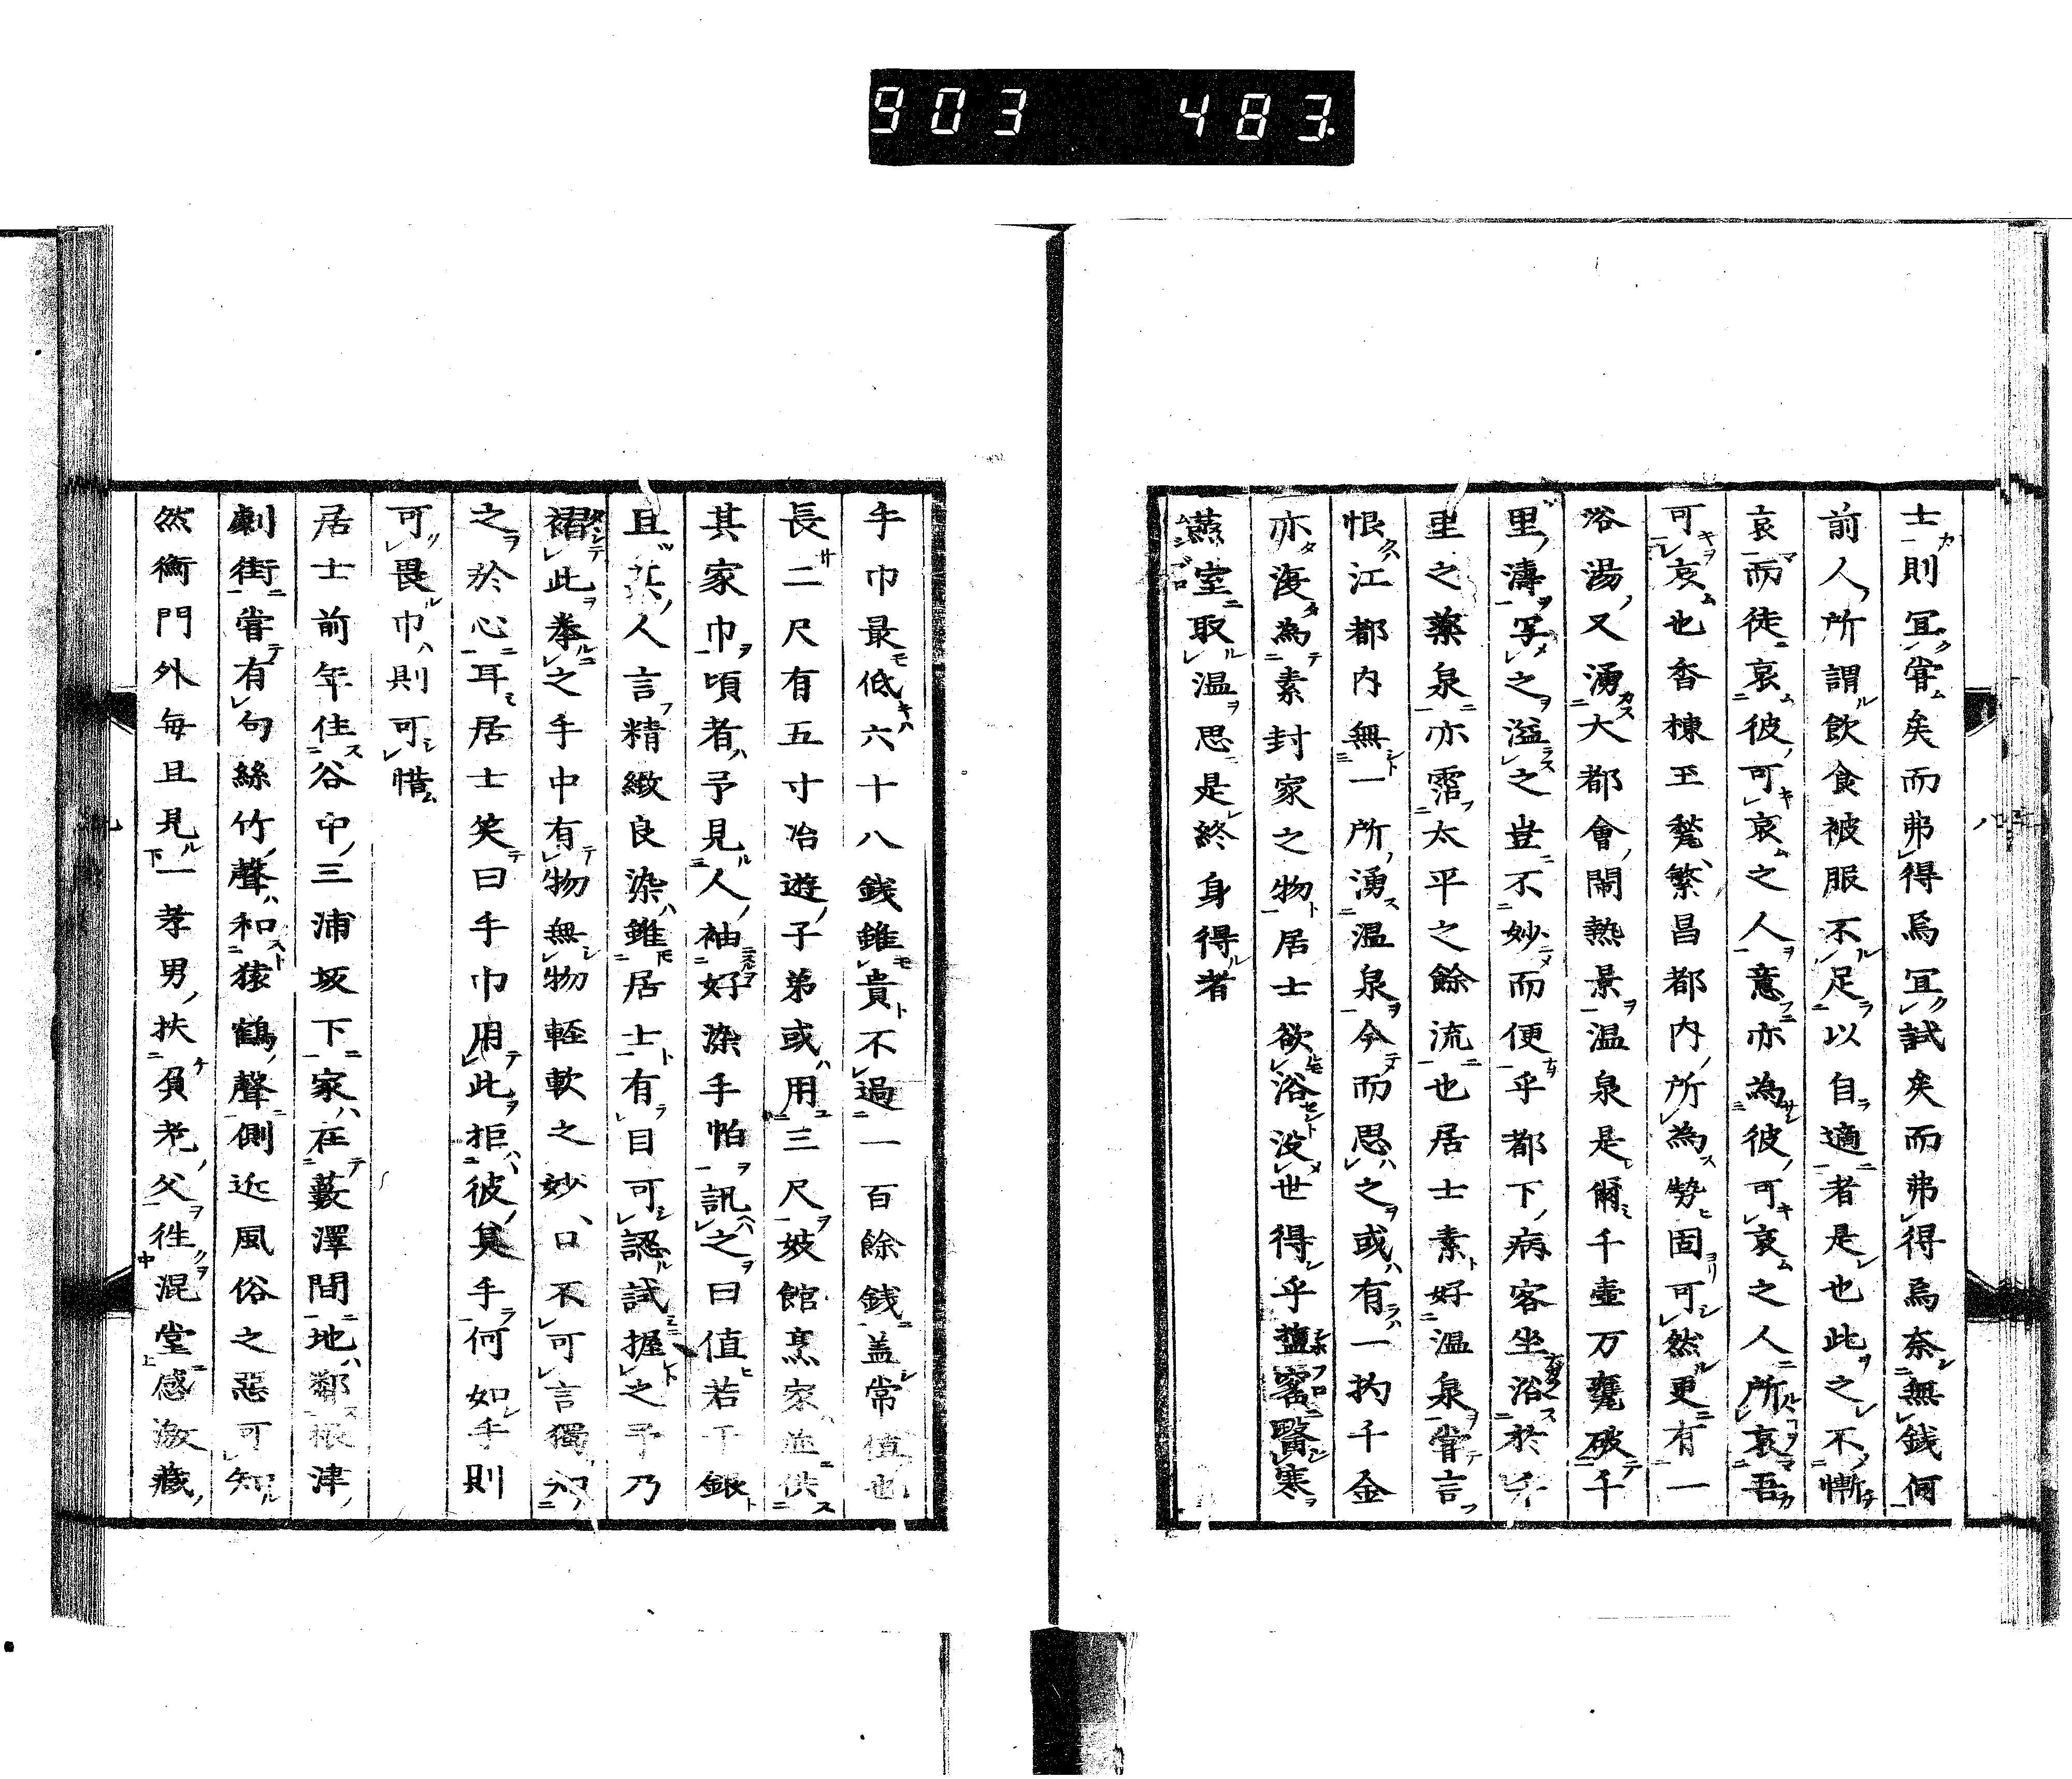 903 483
士則宜嘗矣而弗得焉宜試矣而弗得焉奈無銭何
前人所謂飲食被服不足以自適者是也此之不慚
哀而徒哀彼可哀之人意亦為彼可哀之人所哀吾
可哀也杳棟玉甃繁昌都内所為勢固可然更有一
浴湯又湧大都會閙熱景温泉是爾千壺万甕破千
里濤写之溢之豈不妙而便乎都下病客坐浴於千
里之薬泉亦霑太平之餘流也居士素好温泉嘗言
恨江都内無一所湧温泉今而思之或有一抔千金
亦漫為素封家之物居士欲浴没世得乎塩窖医寒
燕室取温思是終身得者
手巾最低六十八銭錐貴不過一百餘銭盖常値也
長二尺有五寸冶遊子弟或用三尺妓館烹家並供
其家巾頃者予見人袖好染手帕訊之曰値若干銀
且其人言精緻良染雖居士有目可認試握之予乃
褶此拳之手中有物無物軽軟之妙口不可言獨知
之於心耳居士笑曰手巾用此拒彼其手何如手則
可畏巾則可惜
居士前年住谷中三浦坂下家在藪澤間地鄰根津
劇街嘗有句絲竹聲和猿鶴聲側近風俗之惡可知
然衡門外毎且見一孝男扶負老父徃混堂感激藏